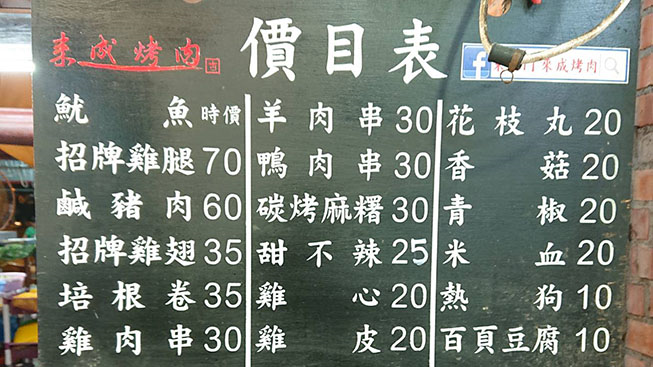 來成烤肉
價目表
來成烤肉
魷魚時價
招牌雞腿70
鹹豬肉60
招牌雞翅35
培根卷35
雞肉串30
羊肉串30
鴨肉串30
碳烤麻糬30
甜不辣25
雞心20
雞皮20
花枝丸20
香菇20
青椒20
米血20
熱狗10
百頁豆腐10